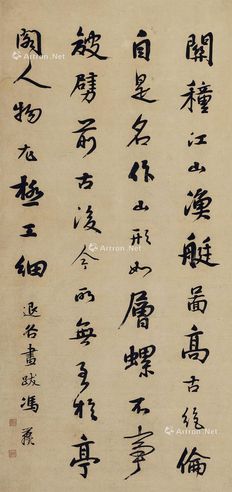 關穜江山漁艇啚高古絕倫
自是名作山形如層螺不事
皴劈前古後今所無至於亭
閣人物尤極工細
退谷畫跋馮
Artron.Net
Artron.Net
Artron.Net
Artron.Net